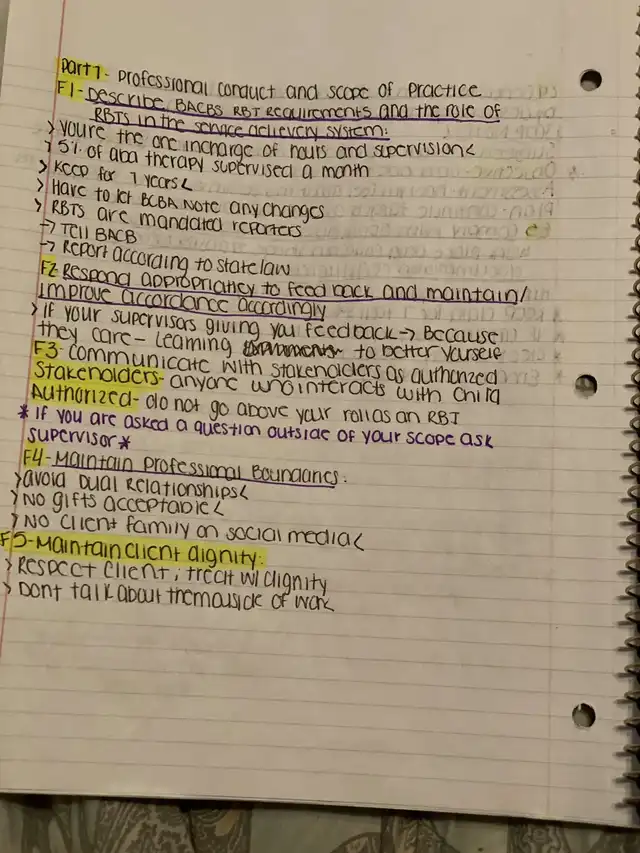 Part 7- Professional conduct and scope of Practice
F1- Describe BACBS RBT Requirements and the role of
RBTS in the service delievery system:
> youre the one incharge of hours and supervision<
> 5% of aba therapy supervised a month
> Keep for 7 years<
> Have to let BCBA Note any changes
> RBTS are mandated reporters
→ Tell BACB
→ Report according to state law
F2- Respond appropriatley to feed back and maintain/
improve accordance accordingly
> if your supervisors giving you feedback → Because
they care - Learning to better yourself
F3- communicate with stakeholders as authorized
Stakeholders- anyone who interacts with child
Authorized- do not go above your role as an RBT
* If you are asked a question outside of your scope ask
supervisor *
F4- Maintain Professional Boundaries:
> avoid Dual Relationships<
> NO gifts acceptable<
> No client family on social media<
F5- Maintain client dignity:
> Respect client; treat w/ dignity
> Dont talk about them ouside of work